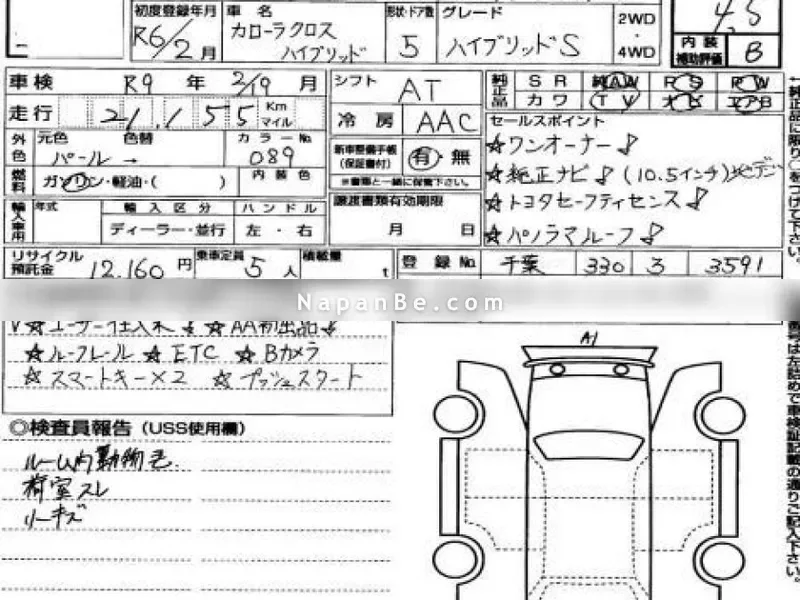 初度登録年月 R6/2月 車名 カローラクロス ハイブリッド 形状・ドア数 5 グレード ハイブリッドS 2WD 4WD 4.5
内装補助評価 B
車検 R9年 2/19月 シフト AT 純正品 SR 純AW PS PW
カワ TV ナビ エアB
走行 21,155 Km マイル 冷房 AAC
セールスポイント
外色 元色 色替 カラーNo.
パール → 089
新車整備手帳(保証書付) 有・無
※書車と一緒に保管下さい。
☆ワンオーナー♪
☆純正ナビ♪(10.5インチ)地デジ
☆トヨタセーフティセンス♪
☆パノラマルーフ♪
燃料 ガソリン・軽油・( ) 内装色
輸入車用 年式 輸入区分 ハンドル
ディーラー・並行 左・右
譲渡書類有効期限
月 日
リサイクル預託金 12,160円 乗車定員 5人 積載量 t 登録No. 千葉 330 3 3591
NapanBe.com
☆ユーザー仕入れ♪ ☆AA初出品♪
☆ルーフレール ☆ETC ☆Bカメラ
☆スマートキー×2 ☆プッシュスタート
◎検査員報告(USS使用欄)
ルーム内動物毛
荷室スレ
リーキズ
A1
←純正品に限り○をつけて下さい。
番号は左詰めで車検証記載の通りご記入下さい。